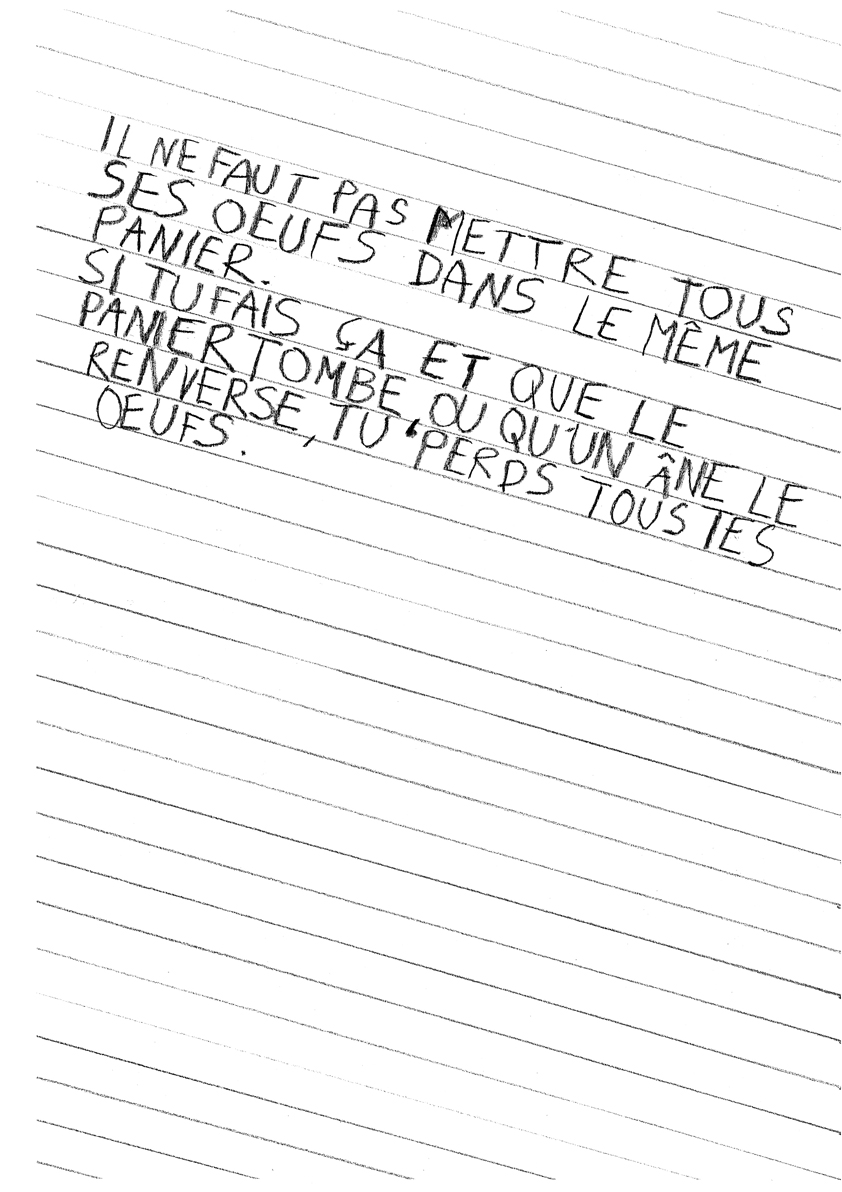 IL NE FAUT PAS METTRE TOUS
SES OEUFS DANS LE MÊME
PANIER.
SI TU FAIS ÇA ET QUE LE
PANIER TOMBE, OU QU'UN ÂNE LE
RENVERSE, TU PERDS TOUS TES
OEUFS.